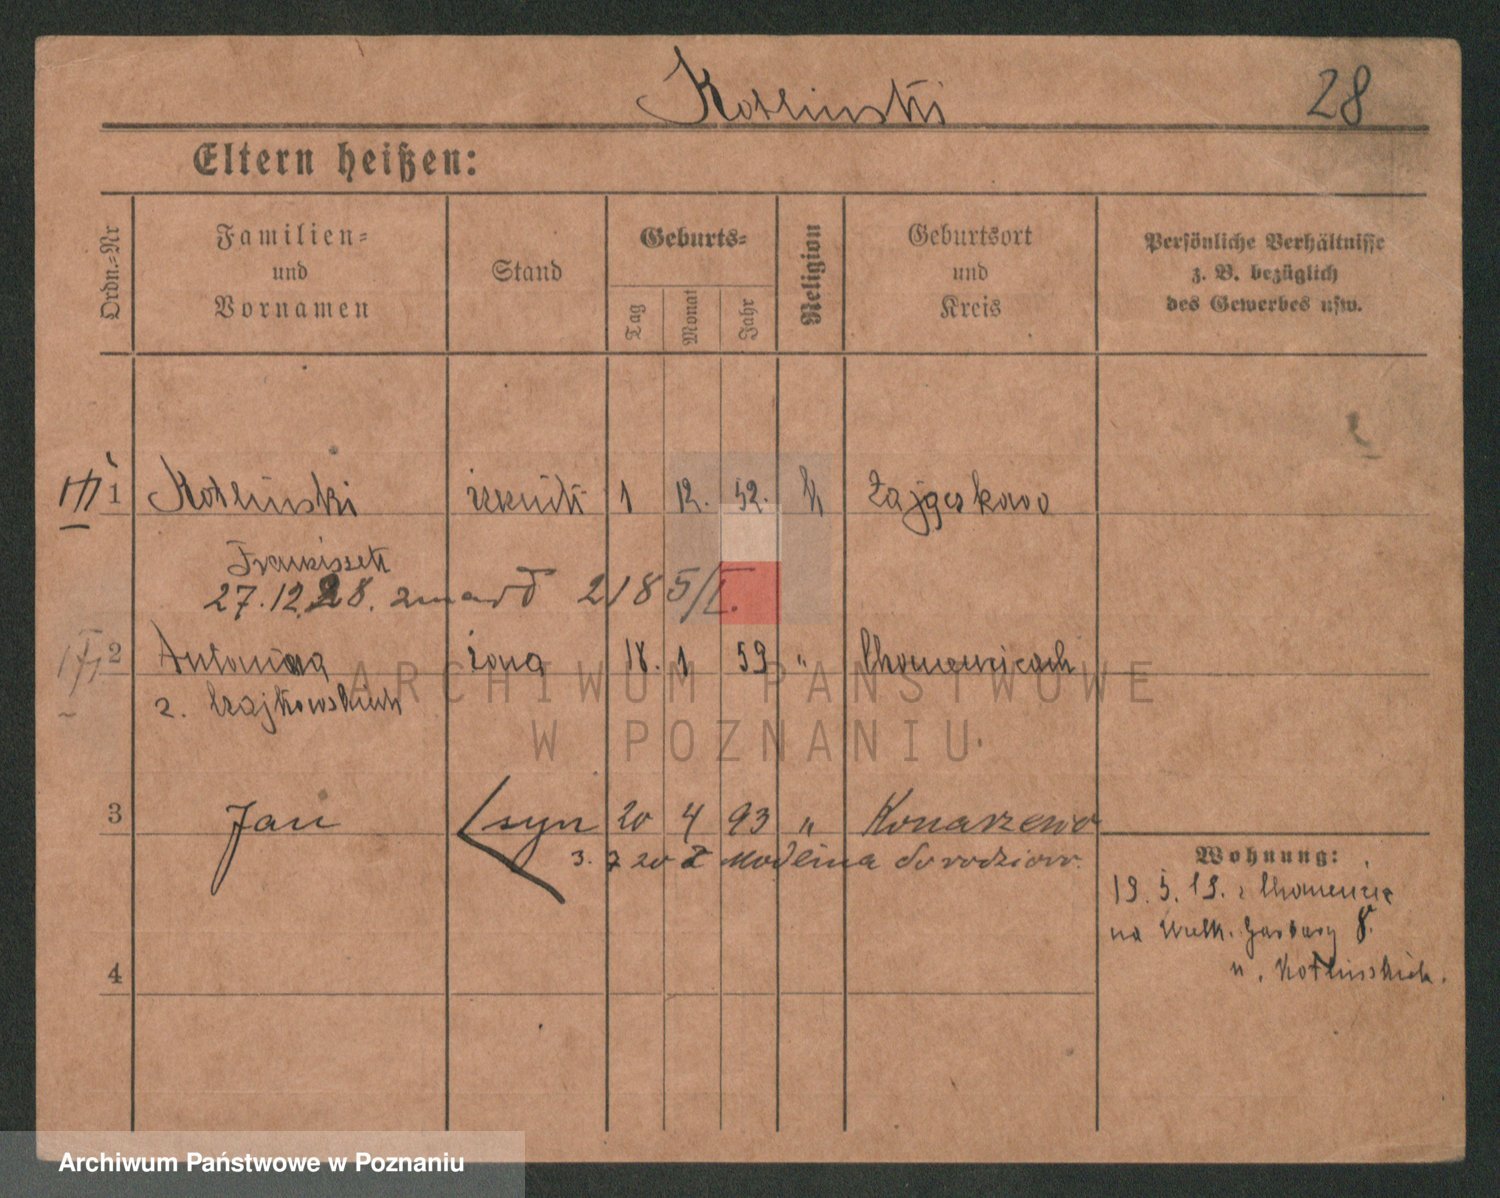 Kotlinski 28
Eltern heißen:
Ordn.=Nr
Familien=
und
Vornamen
Stand
Geburts=
Tag
Monat
Jahr
Religion
Geburtsort
und
Kreis
Persönliche Verhältnisse
z. B. bezüglich
des Gewerbes usw.
1 Kotlinski 1 12. 52. k
Franciszek
27.12.28. zmarł 2185/I.
2 Antonina żona 18. 1 59 " Chomencicach
z. Czajkowskich
3 Jan syn 20 4 93 " Konarzewo
3. 7 20 z Modlina do rodziców.
Wohnung:
19. 5. 19. z Chomencic
na Wielk. Garbary 8.
u. Kotlinskich.
4
ARCHIWUM PAŃSTWOWE
W POZNANIU
Archiwum Państwowe w Poznaniu